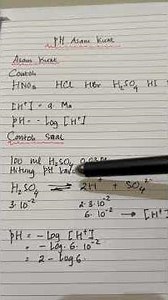 pH Asam Kuat
Asam Kuat
Contoh
HNO₃ HCl HBr H₂SO₄ HI
[H⁺] = a. Ma
pH = - log [H⁺]
Contoh Soal
100 ml H₂SO₄
Hitung pH
H₂SO₄ ⇌ 2H⁺ + SO₄²⁻
3·10⁻² 2·3·10⁻²
6·10⁻² → [H⁺]
pH = - log [H⁺]
= - log 6·10⁻²
= 2 - log 6.